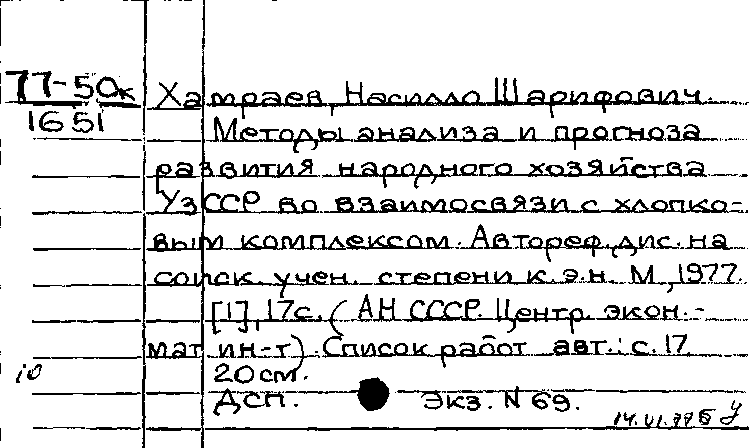 77-50к
1651
Хатраев, Насилло Шарифович.
Методы анализа и прогноза
развития народного хозяйства
УзССР во взаимосвязи с хлопко-
вым комплексом. Автореф. дис. на
соиск. учен. степени к.э.н. М., 1977.
[1], 17с. (АН СССР. Центр. экон.-
мат. ин-т). Список работ авт.: с. 17.
20 см.
10
Дсп. Экз. N 69.